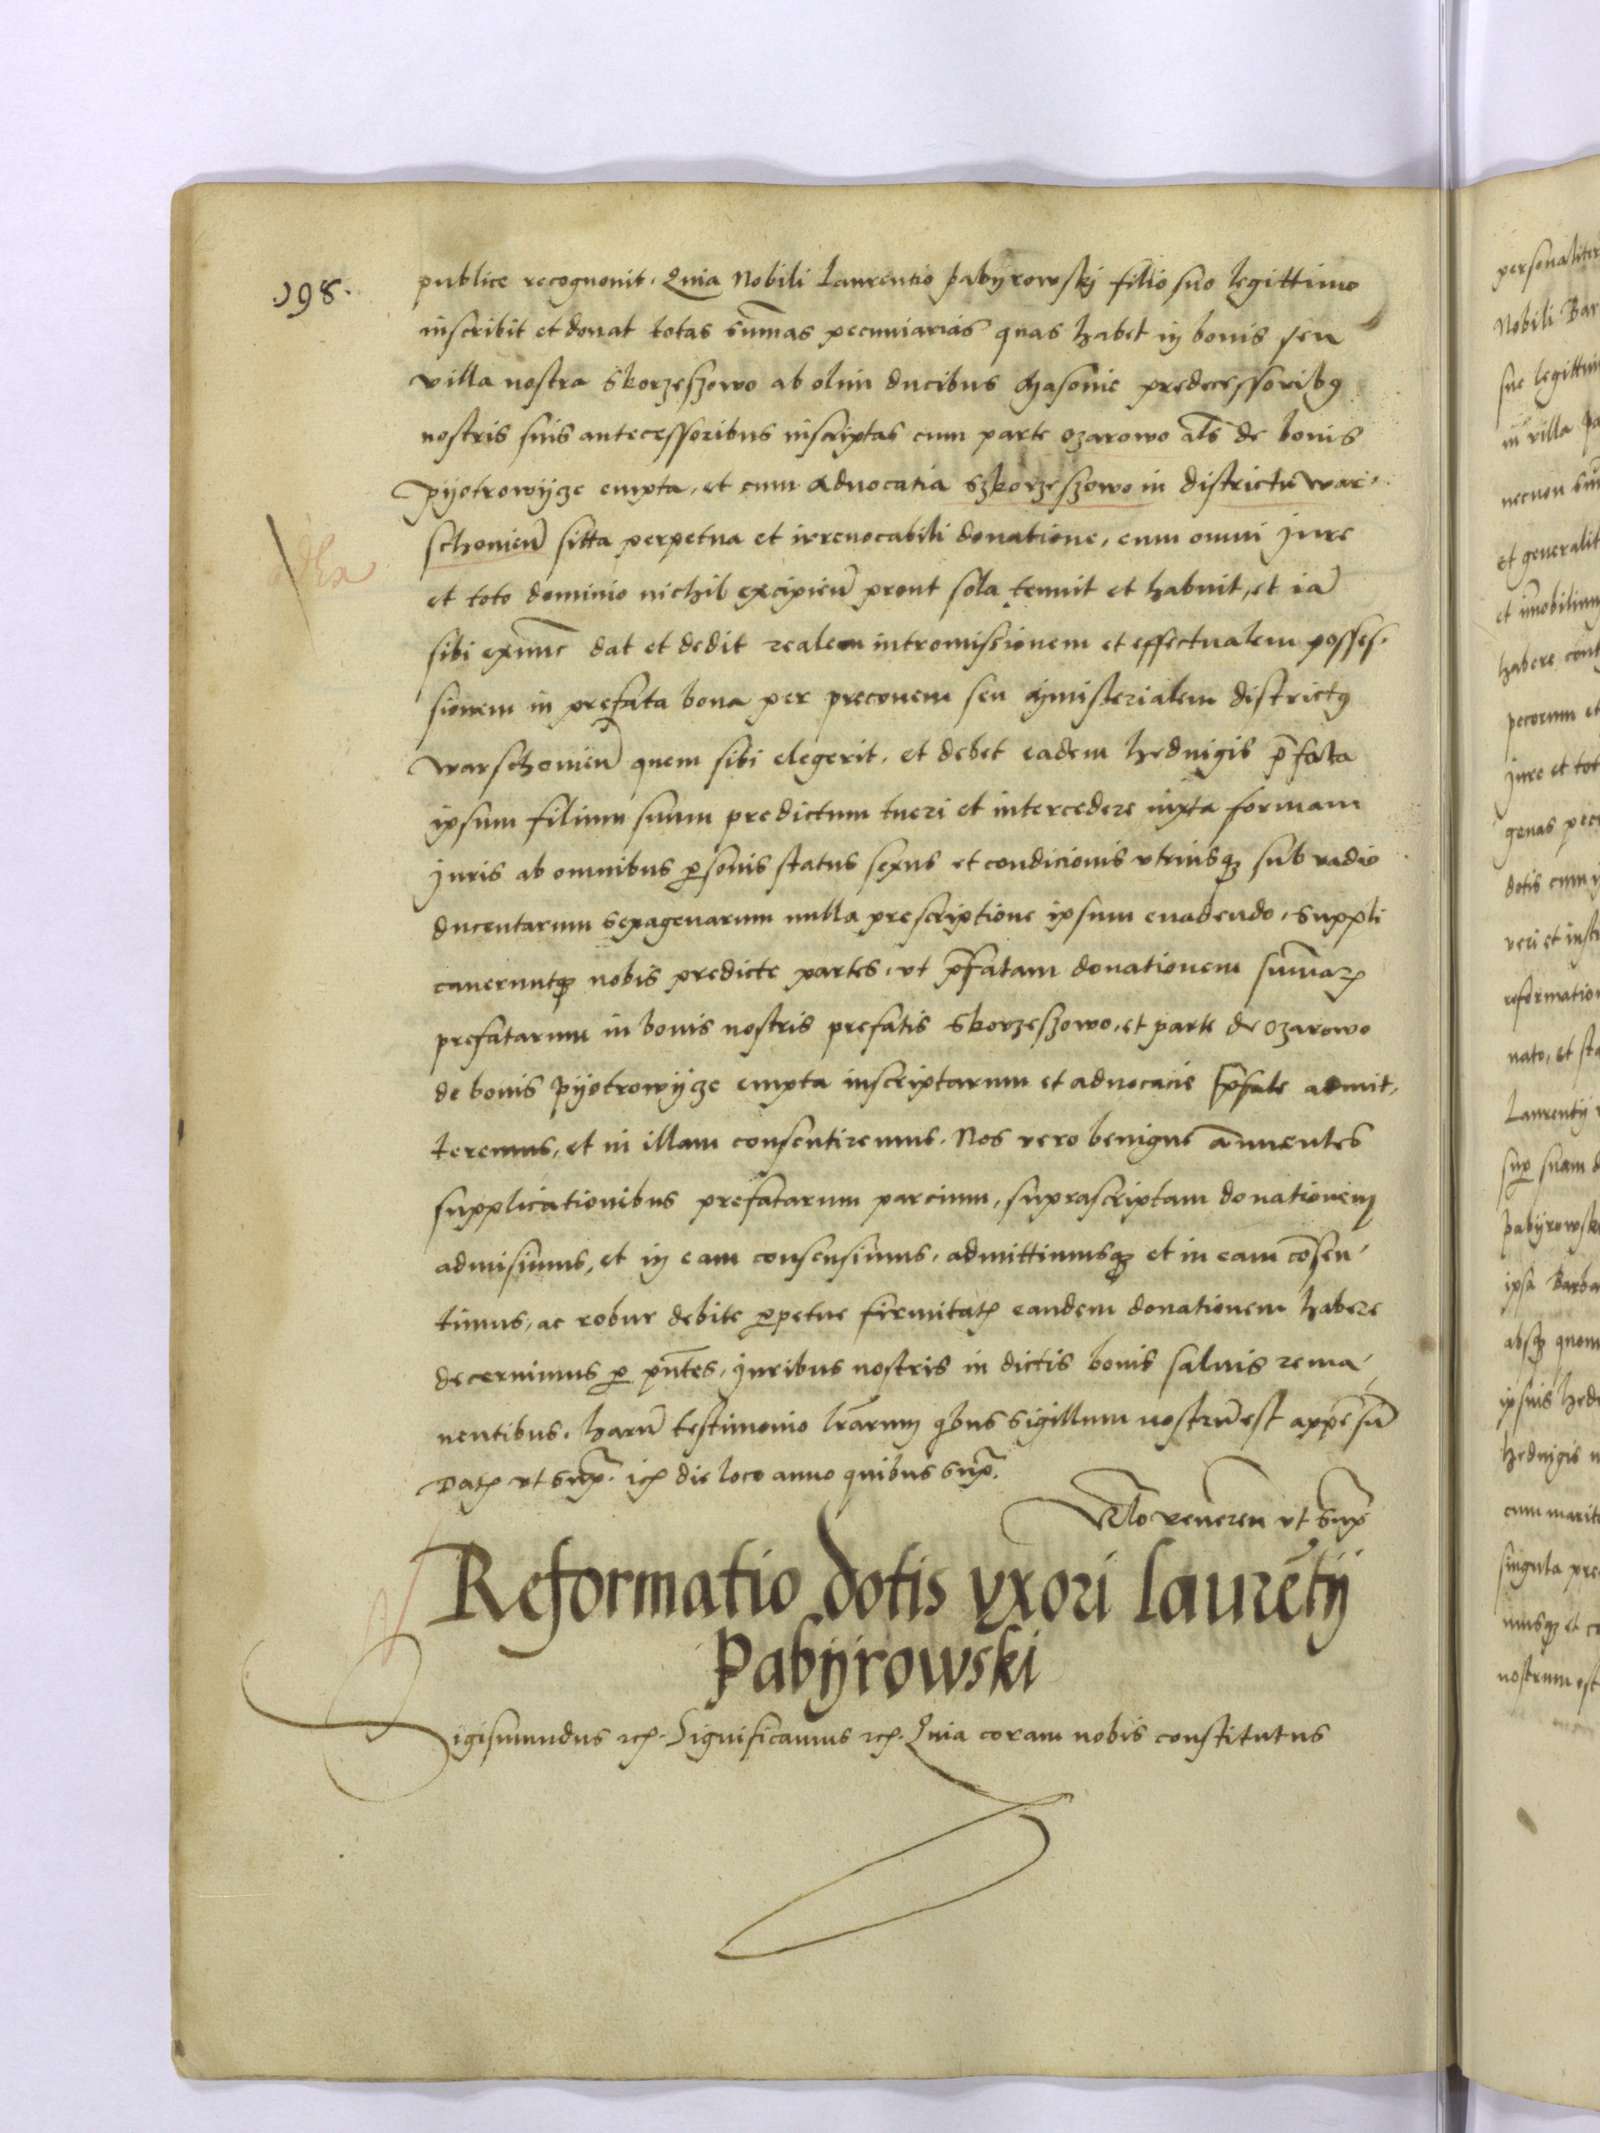 198.
publice recognouit. Quia Nobili Laurentio Pabyrowskj filio suo legittimo
inscribit et donat totas sum̃as pecuniarias quas habet in bonis seu
villa nostra Skorzeszowo ab olim ducibus Masouie predecessoribꝯ
nostris suis antecessoribus inscriptas cum parte Ozarowo al̃s de bonis
Pyotrowycze empta, et cum Aduocatia Szkorzeszowo in districtu war-
schouien̄ sitta perpetua et irreuocabili donatione, cum omni Jure
et toto dominio nichil excipien̄ prout sola tenuit et habuit, et iā
sibi exnunc dat et dedit realem intromissionem et effectualem posses-
sionem in prefata bona per preconem seu Ministerialem districtꝯ
warschouien̄ quem sibi elegerit, et debet eadem Heduigis p̄fata
ipsum filium suum predictum tueri et intercedere iuxta formam
Juris ab omnibus ꝑsonis status sexus et condicionis vtriusqꝫ sub vadio
ducentarum sexagenarum nulla prescriptione ipsum euadendo. Suppli
caueruntqꝫ nobis predicte partes, vt p̄fatam donationem sum̄aꝝ
prefatarum in bonis nostris prefatis Skorzeszowo, et parte de Ozarowo
de bonis Pyotrowycze empta inscriptarum et aduocacie p̄fate admit-
teremus, et in illam consentiremus. Nos vero benigne annuentes
supplicationibus prefatarum parcium, suprascriptam donationem
admisimus, et in eam consensimus, admittimusqꝫ et in eam cōsen-
timus, ac robur debite ꝑpetue firmitatꝭ eandem donationem habere
decernimus ꝑ pn̄tes, Juribus nostris in dictis bonis saluis rema-
nentibus. harū testimonio lr̄arum qͥbus Sigillum nostrū est appēsū
Datꝭ vt supͣ. icꝭ die loco anno quibus supͣ.
Rlo reueren vt supͣ
Reformatio dotis vxori Laurētij
Pabyrowski
Sigismundus ꝛcꝭ. Significamus ꝛcꝭ. Quia coram nobis constitutus
personaliter
Nobili Bar
sue legittim
in villa Pa
necnon sum
et generalit
et im̄obilium
habere cont
pecorum et
Jure et tot
genas pecu
dotis cum
reformation
nato, et sta
Laurentij
suꝑ suam d
Pabyrowsk
ipsa Barba
absqꝫ quom
ipsius Hed
Heduigis
cum marit
singula pre
musqꝫ et co
nostrum est